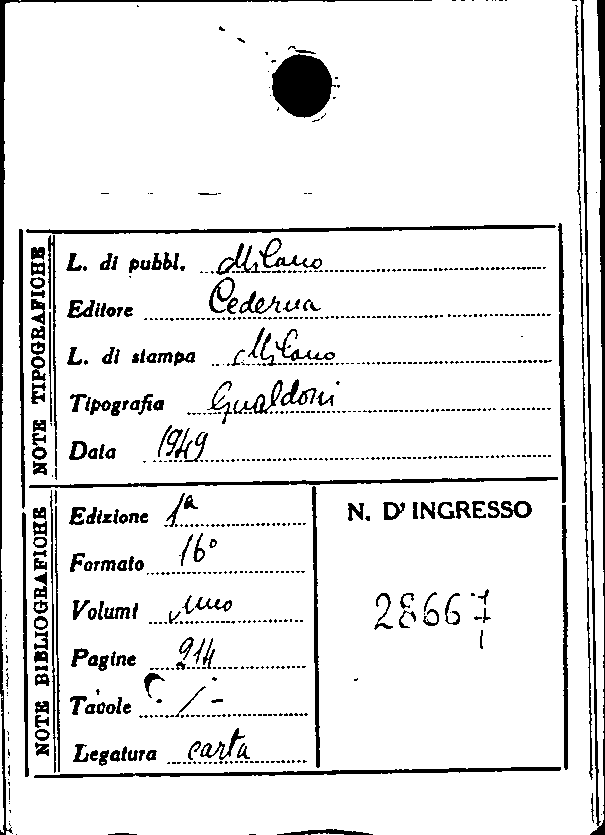 NOTE TIPOGRAFICHE
L. di pubbl. Milano
Editore Cederna
L. di stampa Milano
Tipografia Gualdoni
Data 1949
NOTE BIBLIOGRAFICHE
Edizione 1ª
Formato 16°
Volumi uno
Pagine 214
Tavole / -
Legatura carta
N. D' INGRESSO
28667